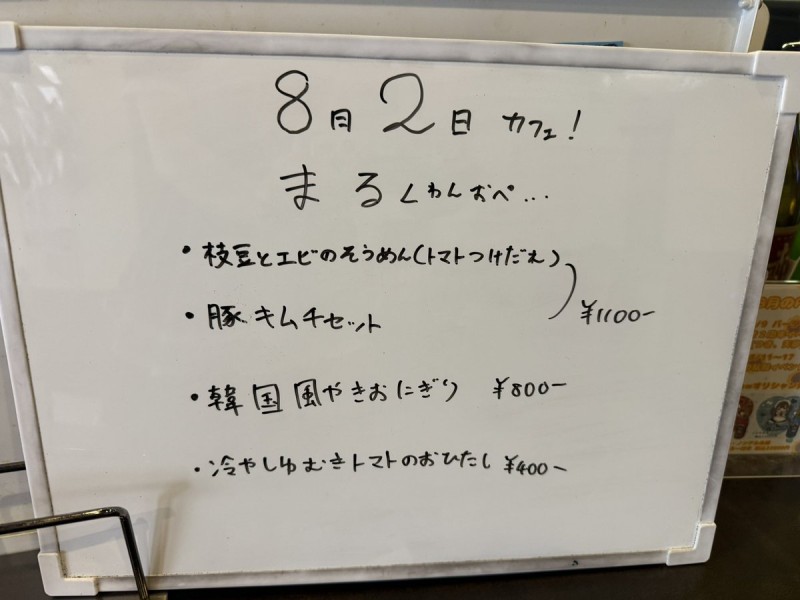 8月2日 カフェ!
まるくわんおぺ...
・枝豆とエビのそうめん(トマトつけだれ)
・豚キムチセット
¥1100-
・韓国風やきおにぎり ¥800-
・冷やしゆむきトマトのおひたし ¥400-